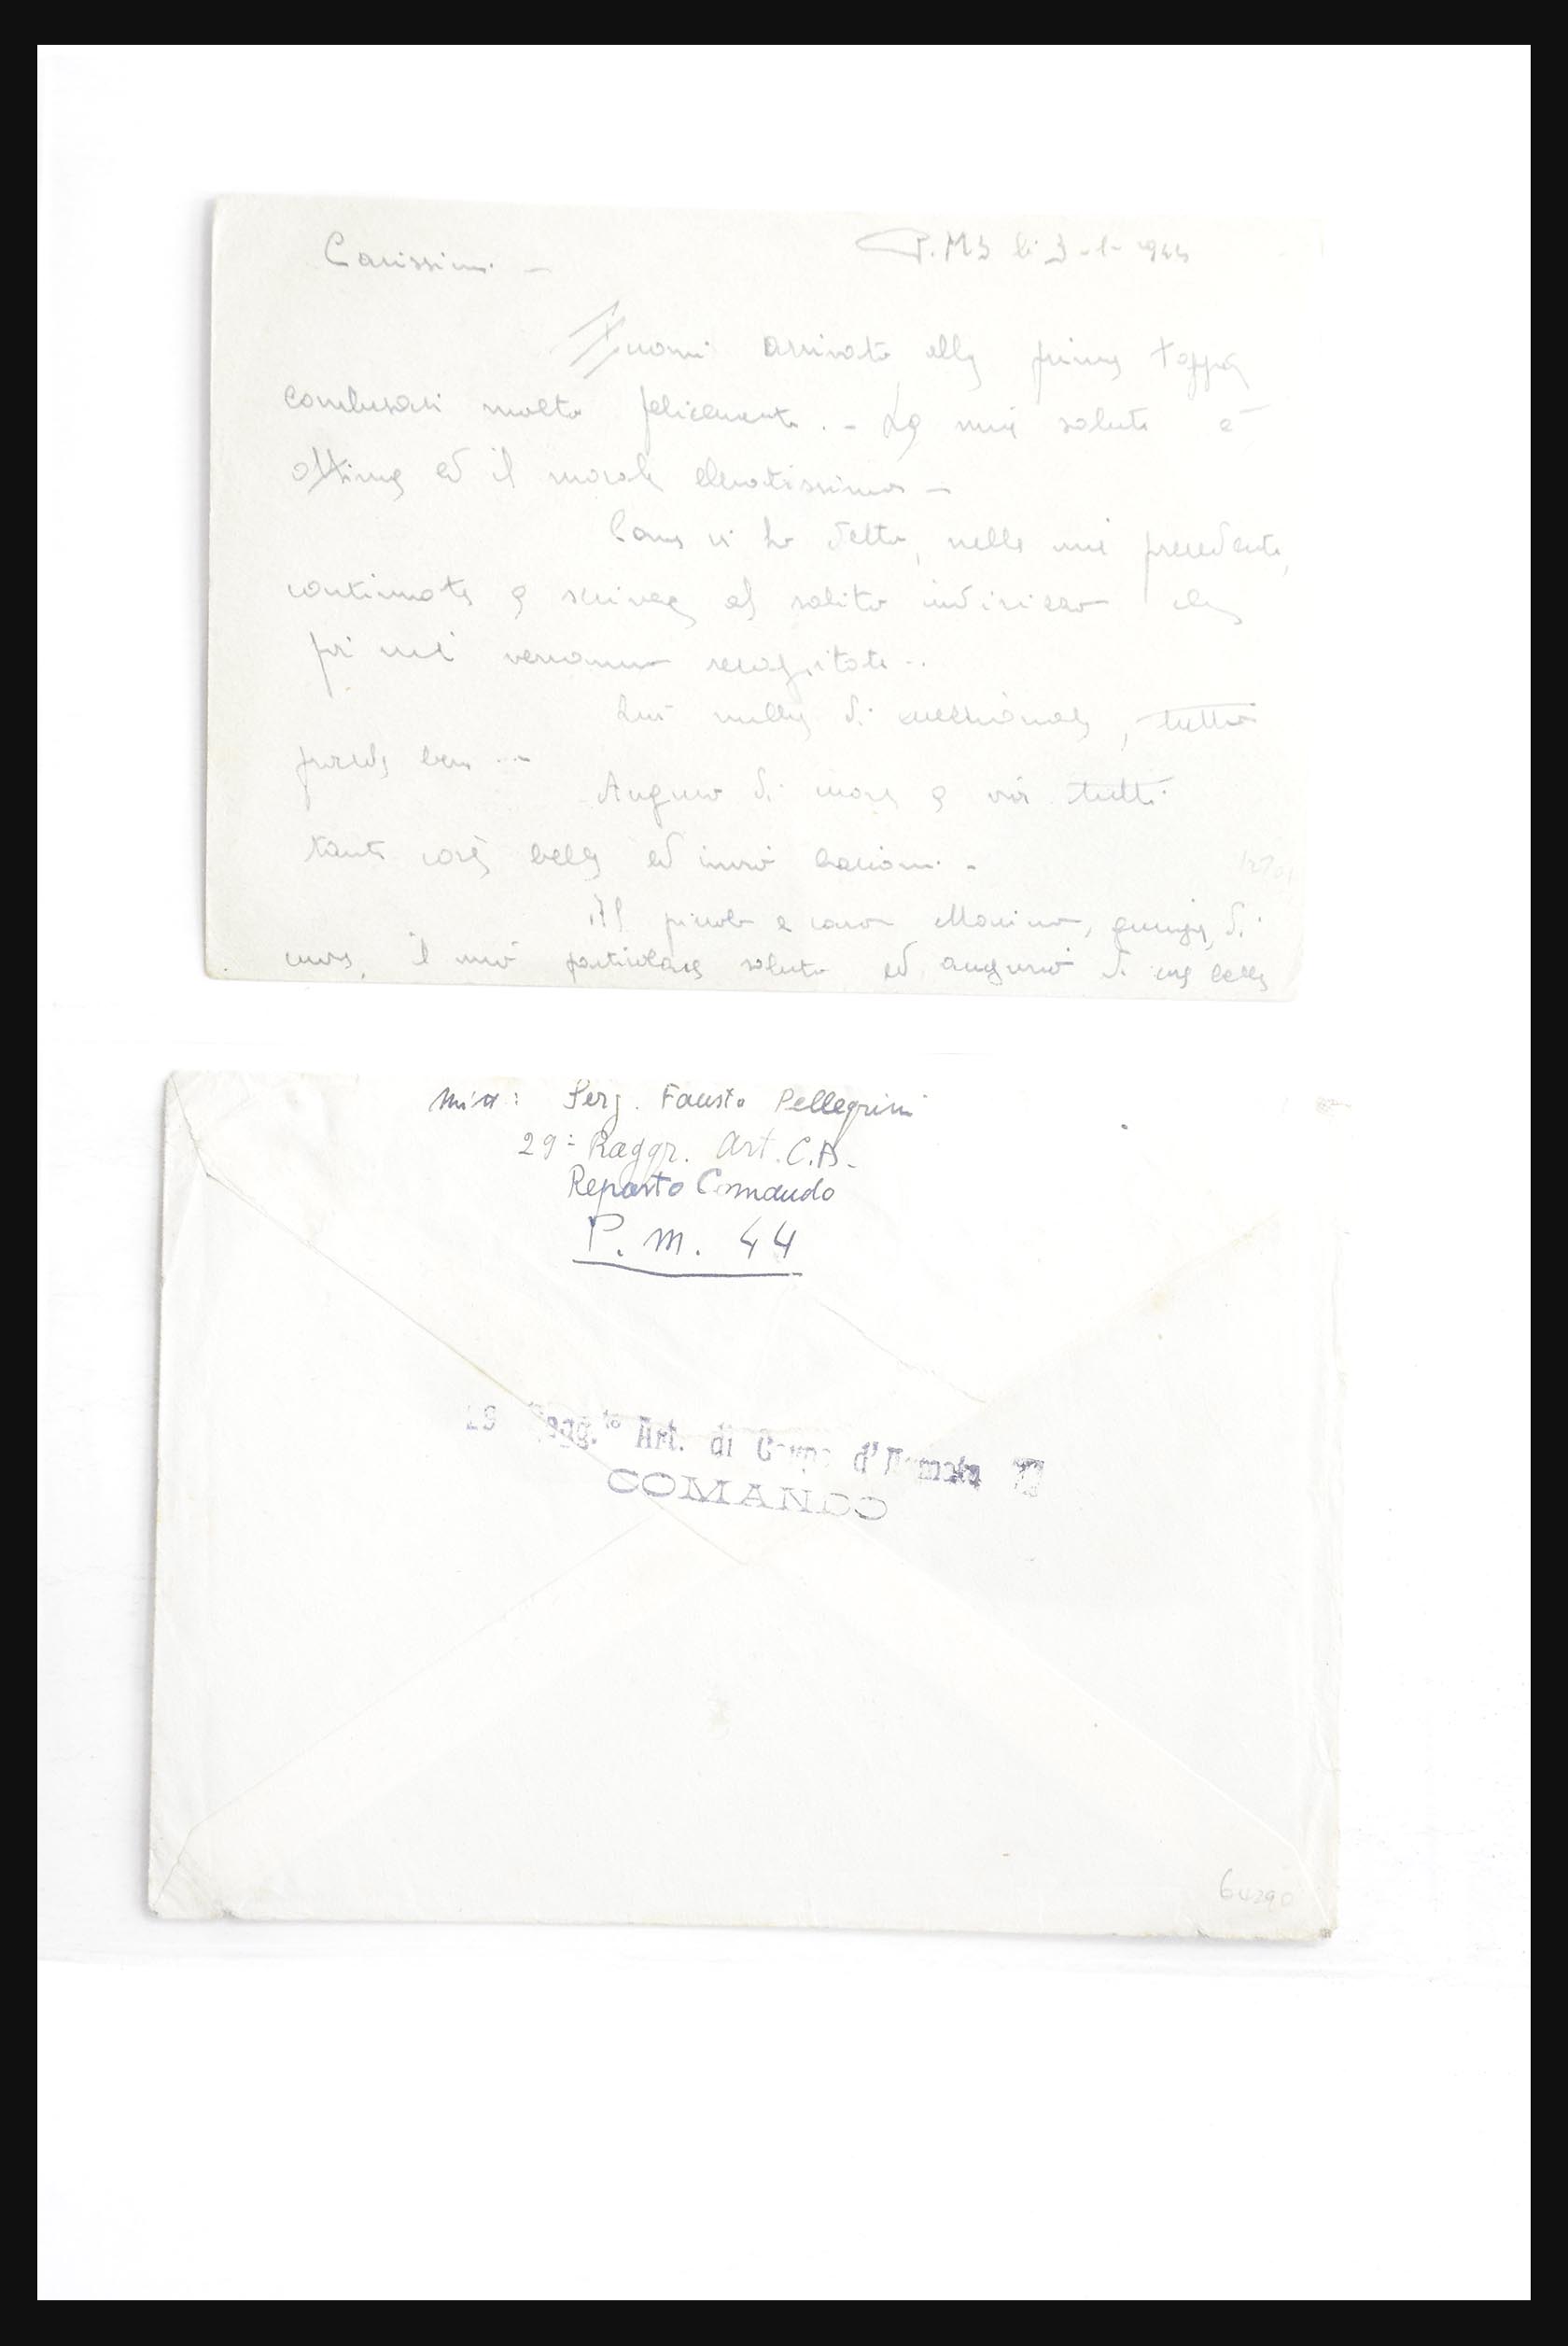 Carissimi - P.M3 li 3-1-943
Suomi arrivato alla prima tappa
molto felicemente. - La mia salute è
ottima ed il morale elevatissimo -
Come vi ho detto, nella mia precedente,
continuate a scrivere al solito indirizzo che
poi mi verranno recapitate -.
Qui nulla di eccezionale, tutto
procede bene -.-
Auguro di cuore a voi tutti
tante cose belle ed invio bacioni. -
Al piccolo e caro Marino, giunga, di
cuore, il mio particolare saluto ed augurio di ogni bene
Mitt: Serg. Fausto Pellegrini
29° Raggr. Art. C.A.
Reparto Comando
P.M. 44
29 Ragg.to Art. di Corpo d'Armata
COMANDO
64290